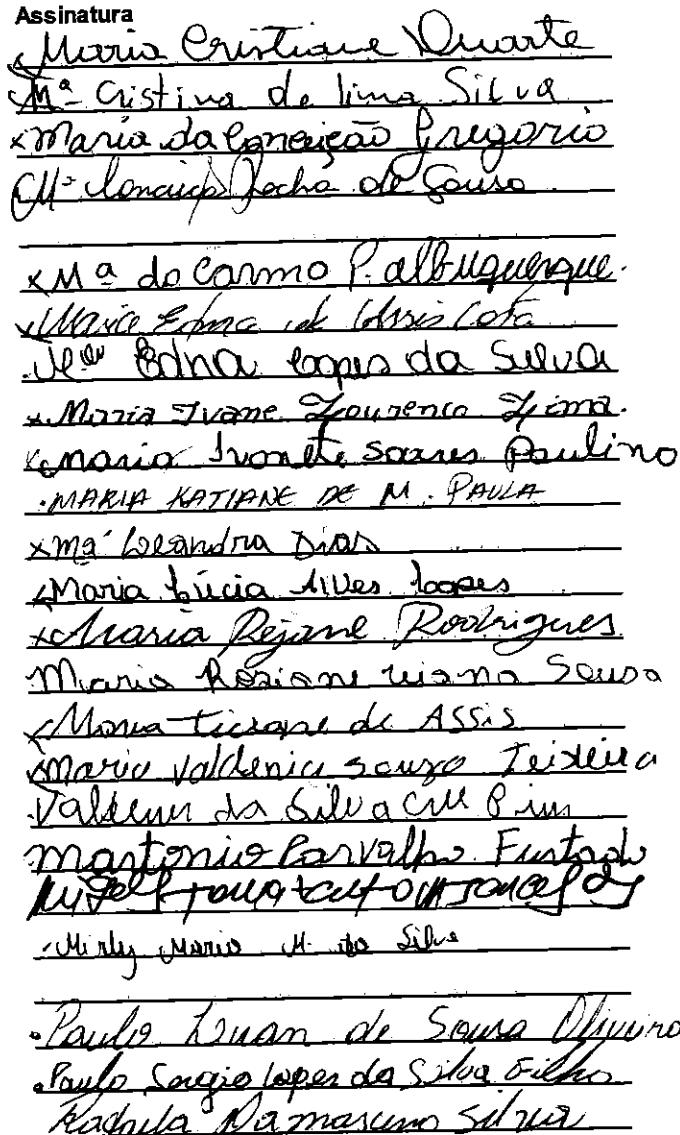 Assinatura
Maria Cristiane Duarte
Mª Cristina de lima Silva
x Maria da Conceição Gregorio
Mª Conceição Rocha de Sousa
x Mª do Carmo P. albuquerque.
x Maria Edna de Assis Costa
Mª Edna Lopes da Silva
x Maria Ivane Lourenco Lima.
x Maria Ivonete Soares Paulino
MARIA KATIANE DE M. PAULA
x mª Leandra Dias
x Maria Lúcia Alves Lopes
x Maria Rejane Rodrigues
Maria Rosiane viana Sousa
x Maria de Assis
x Maria Valdenia Souza Teixeira
da Silva
Martonio Carvalho Furtado
Mirly Maria M. da Silva
Paulo Luan de Sousa Oliveira
Paulo Sergio Lopes da Silva Filho
Rafaela Damasceno Silva